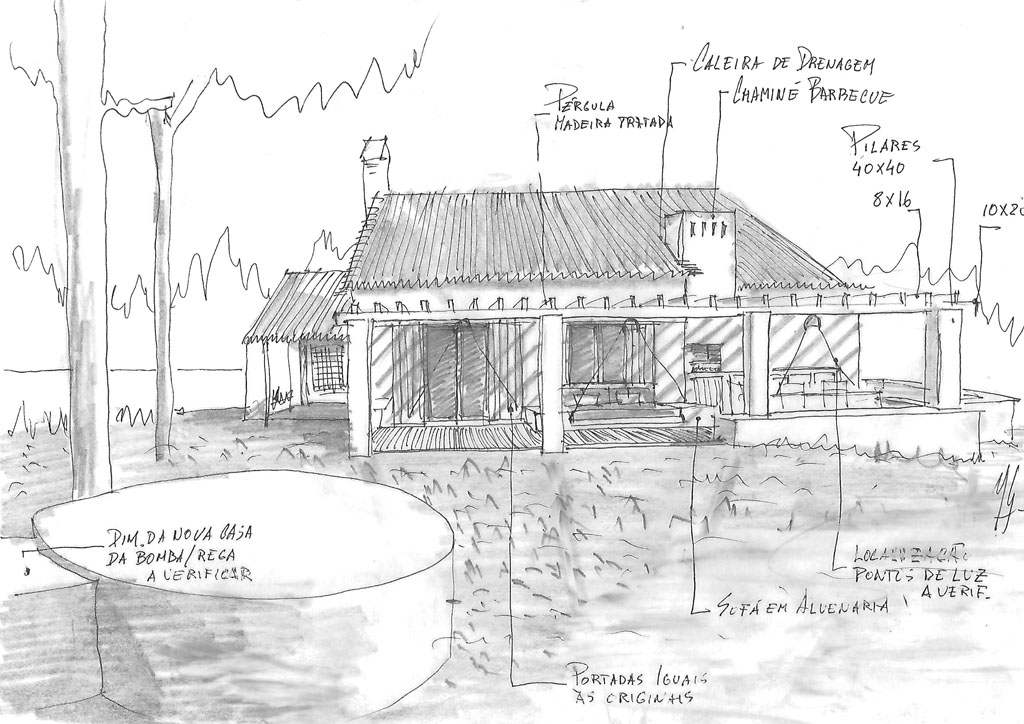 CALEIRA DE DRENAGEM
CHAMINÉ BARBECUE
PÉRGULA
MADEIRA TRATADA
PILARES
40X40
8X16
10X20
DIM. DA NOVA CASA
DA BOMBA/REGA
A VERIFICAR
LOCALIZAÇÃO
PONTOS DE LUZ
A VERIF.
SOFÁ EM ALVENARIA
PORTADAS IGUAIS
ÀS ORIGINAIS